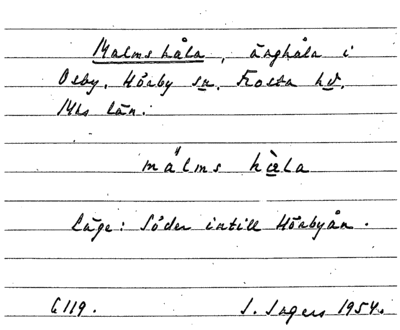 Malmshåla, änghåla i
Osby, Hörby sn. Frosta hd.
Mhs län.
málms hàla
Läge: Söder intill Hörbyån.
6119. I. Ingers 1954.